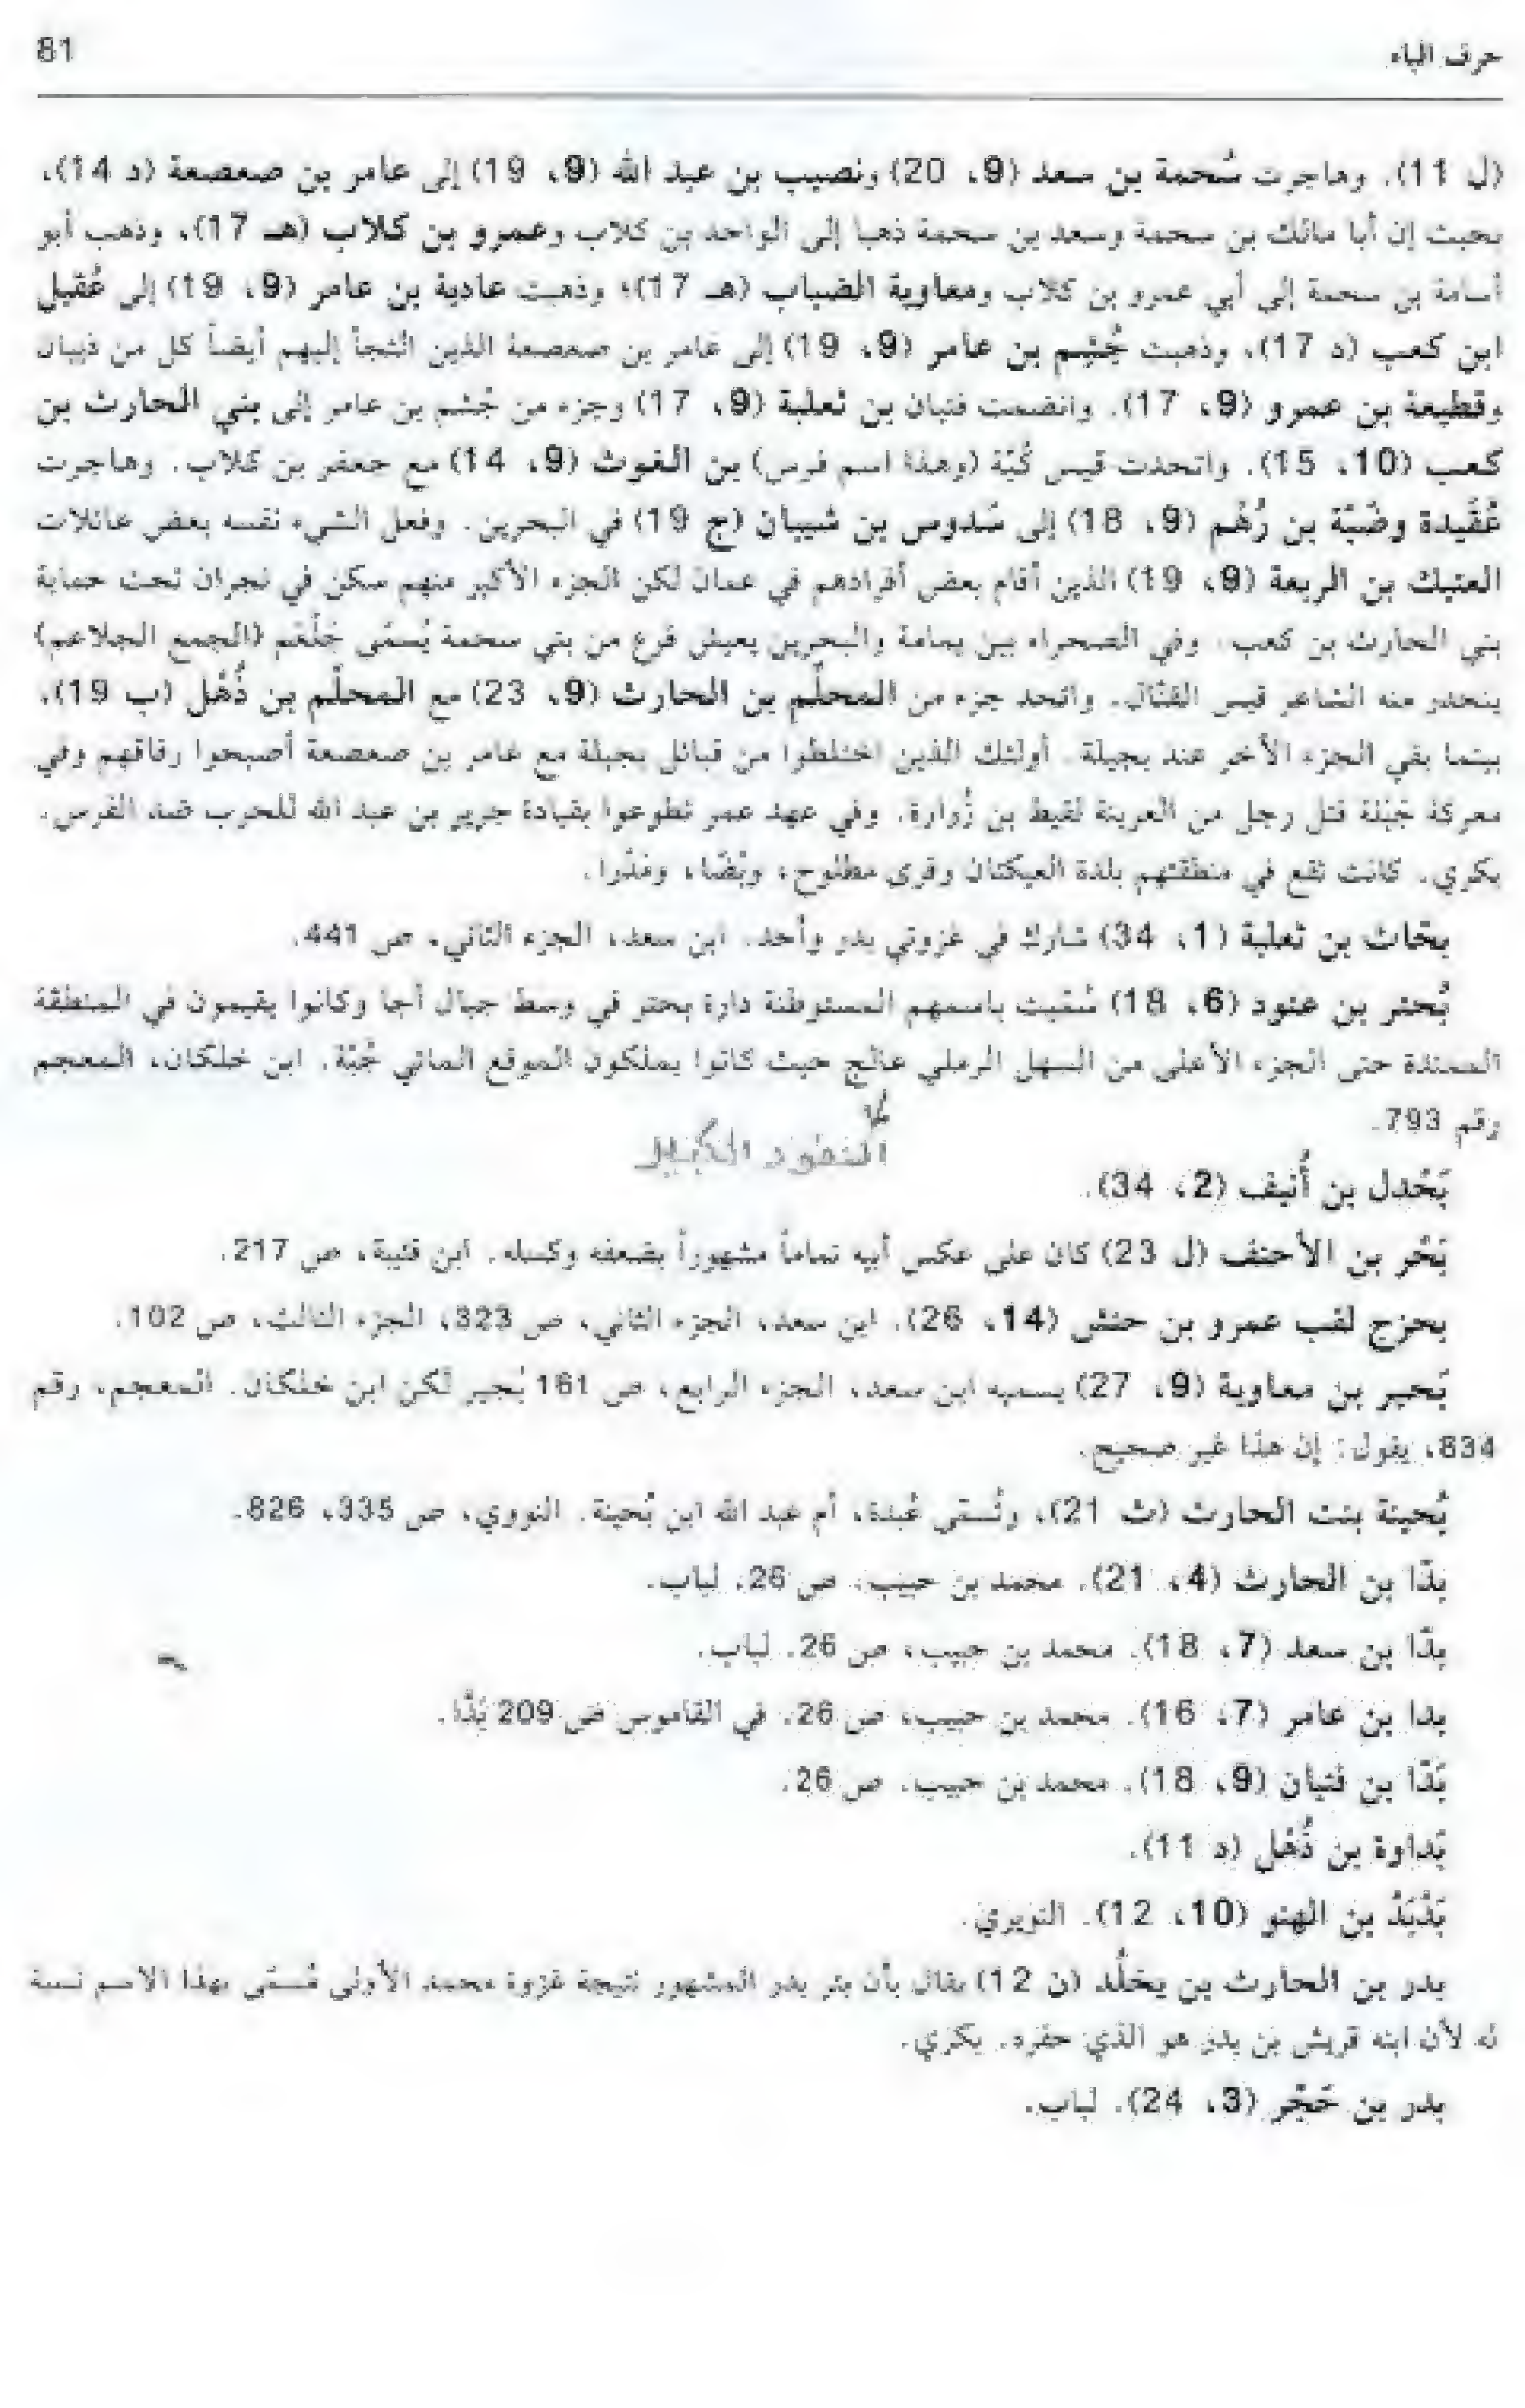 حرف الباء 81
(ل 11). وهاجرت سُحمة بن سعد (9، 20) ونصيب بن عبد الله (9، 19) إلى عامر بن صعصعة (د 14)،
بحيث إن أبا مالك بن سحمة وسعد بن سحمة ذهبا إلى الواحد بن كلاب وعمرو بن كلاب (هـ 17)، وذهب أبو
أسامة بن سحمة إلى أبي عمرو بن كلاب ومعاوية الضباب (هـ 17)؛ وذهبت عادية بن عامر (9، 19) إلى عُقيل
ابن كعب (د 17)، وذهبت جُشم بن عامر (9، 19) إلى عامر بن صعصعة الذين التجأ إليهم أيضاً كل من ذبيان
وقطيعة بن عمرو (9، 17). وانضمت فتيان بن ثعلبة (9، 17) وجزء من جُشم بن عامر إلى بني الحارث بن
كعب (10، 15). واتحدت قيس كُبّة (وهذا اسم فرس) بن الغوث (9، 14) مع جعفر بن كلاب. وهاجرت
عُقَيدة وضَبّة بن رُهْم (9، 18) إلى سَدوس بن شيبان (ج 19) في البحرين. وفعل الشيء نفسه بعض عائلات
العتيك بن الربعة (9، 19) الذين أقام بعض أفرادهم في عمان لكن الجزء الأكبر منهم سكن في نجران تحت حماية
بني الحارث بن كعب. وفي الصحراء بين يمامة والبحرين يعيش فرع من بني سحمة يُسمّى جَلْعَم (الجمع الجلاعم)
ينحدر منه الشاعر قيس القتّال. واتحد جزء من المحلّم بن الحارث (9، 23) مع المحلّم بن ذُهْل (ب 19)،
بينما بقي الجزء الآخر عند بجيلة. أولئك الذين اختلطوا من قبائل بجيلة مع عامر بن صعصعة أصبحوا رفاقهم وفي
معركة جَبَلة قتل رجل من العرينة لقيط بن زُوارة. وفي عهد عمر تطوعوا بقيادة جرير بن عبد الله للحرب ضد الفرس.
بكري. كانت تقع في منطقتهم بلدة العيكتان وقرى مطلوح، وبَضّا، ومَذْوا.
بحّاث بن ثعلبة (1، 34) شارك في غزوتي بدر وأحد. ابن سعد، الجزء الثاني، ص 441.
بُحتر بن عتود (6، 18) سُمّيت باسمهم المستوطنة دارة بحتر في وسط جبال أجا وكانوا يقيمون في المنطقة
الممتدة حتى الجزء الأعلى من السهل الرملي عالج حيث كانوا يملكون الموقع المائي جُبّة. ابن خلكان، المعجم
رقم 793.
النفود الكبير
بَحْدل بن أُنيف (2، 34).
بَحْر بن الأحنف (ل 23) كان على عكس أبيه تماماً مشهوراً بضعفه وكسله. ابن قتيبة، ص 217.
بحزج لقب عمرو بن حنش (14، 26). ابن سعد، الجزء الثاني، ص 323، الجزء الثالث، ص 102.
بَحير بن معاوية (9، 27) يسميه ابن سعد، الجزء الرابع، ص 161 بُجير لكن ابن خلكان. المعجم، رقم
834، يقول: إن هذا غير صحيح.
بُحينة بنت الحارث (ث 21)، وتُسمّى عُبدة، أم عبد الله ابن بُحينة. النووي، ص 335، 826.
بدّا بن الحارث (4، 21). محمد بن حبيب، ص 26. لباب.
بدّا بن سعد (7، 18). محمد بن حبيب، ص 26. لباب.
بدا بن عامر (7، 16). محمد بن حبيب، ص 26. في القاموس ص 209 بَدَّا.
بَدّا بن فتيان (9، 18). محمد بن حبيب. ص 26.
بَداوة بن ذُهْل (د 11).
بَدْبَدْ بن الهنو (10، 12). النويري.
بدر بن الحارث بن يخلُد (ن 12) يقال بأن بئر بدر المشهور نتيجة غزوة محمد الأولى سُمّي بهذا الاسم نسبة
له لأن ابنه قريش بن بدر هو الذي حفره. بكري.
بدر بن حَجْر (3، 24). لباب.